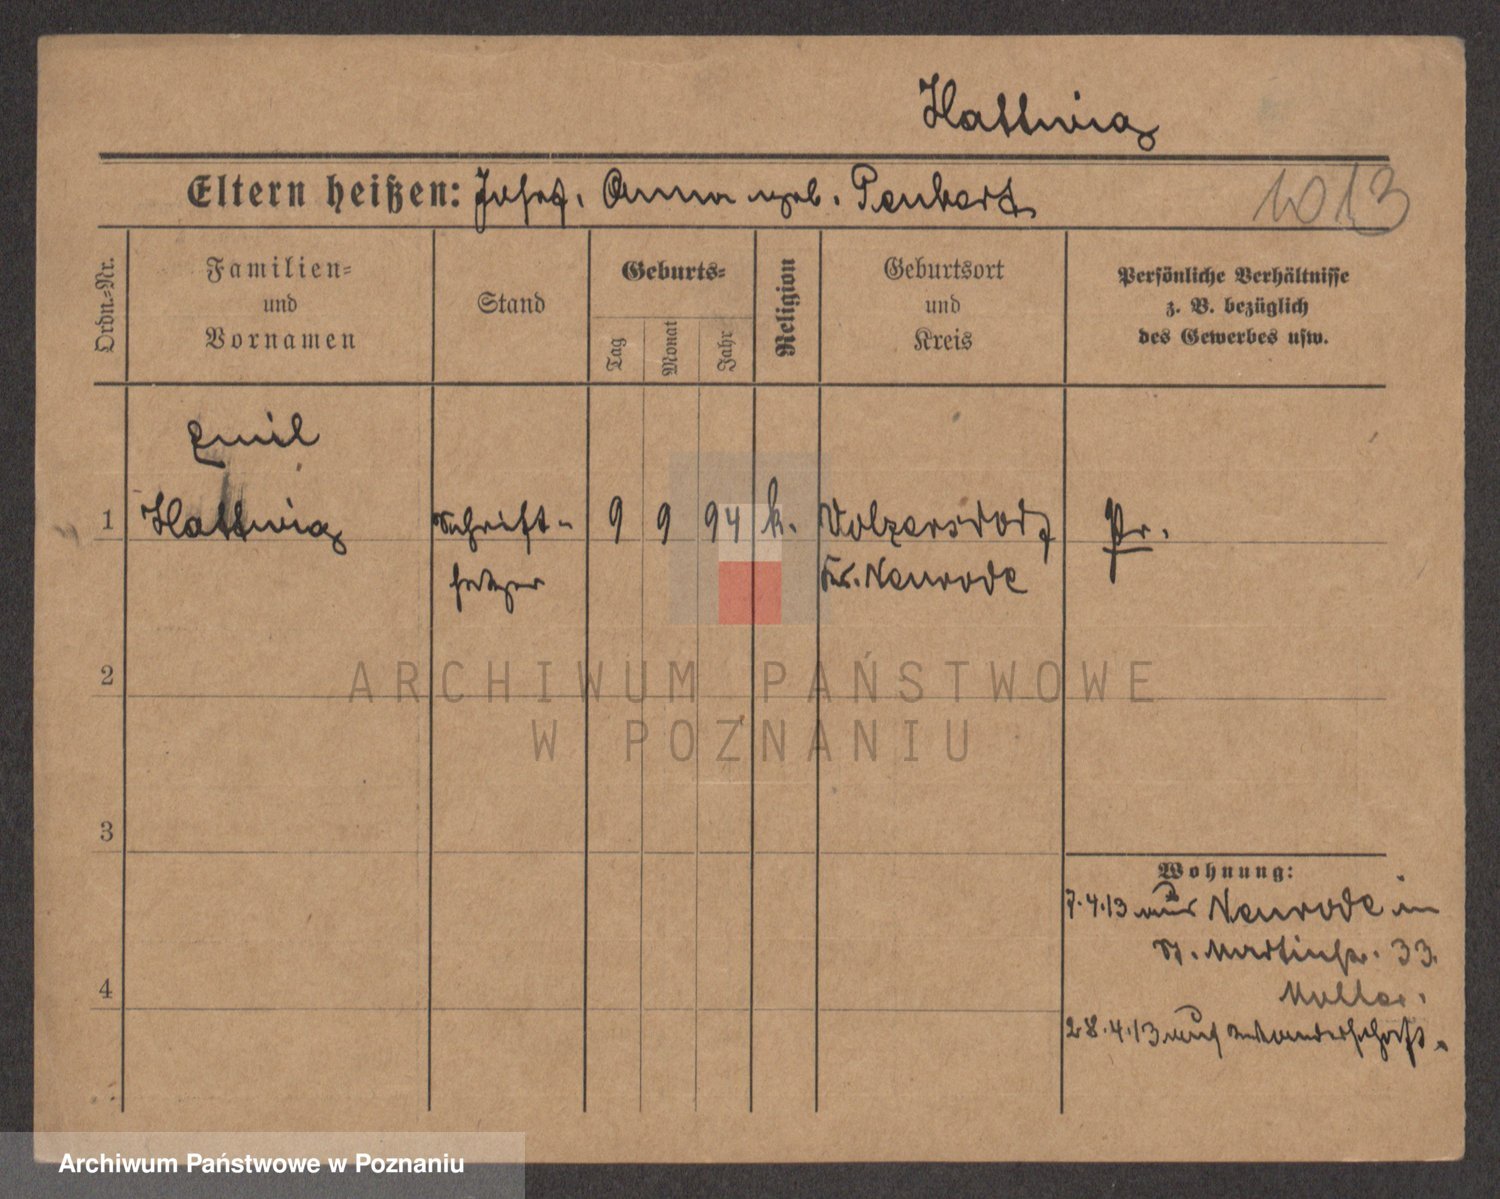 Hattwig
Eltern heißen: Josef, Anna geb. Peukert
1013
Ordn.=Nr.
Familien=
und
Vornamen
Stand
Geburts=
Tag
Monat
Jahr
Religion
Geburtsort
und
Kreis
Persönliche Verhältnisse
z. B. bezüglich
des Gewerbes usw.
Emil
1 Hattwig Schrift- 9 9 94 k. Volpersdorf Pr.
setzer Kr. Neurode
2
3
4
Wohnung:
7.4.13 aus Neurode in
St. Martinstr. 33
28.4.13 auf Wanderschaft.
ARCHIWUM PAŃSTWOWE
W POZNANIU
Archiwum Państwowe w Poznaniu